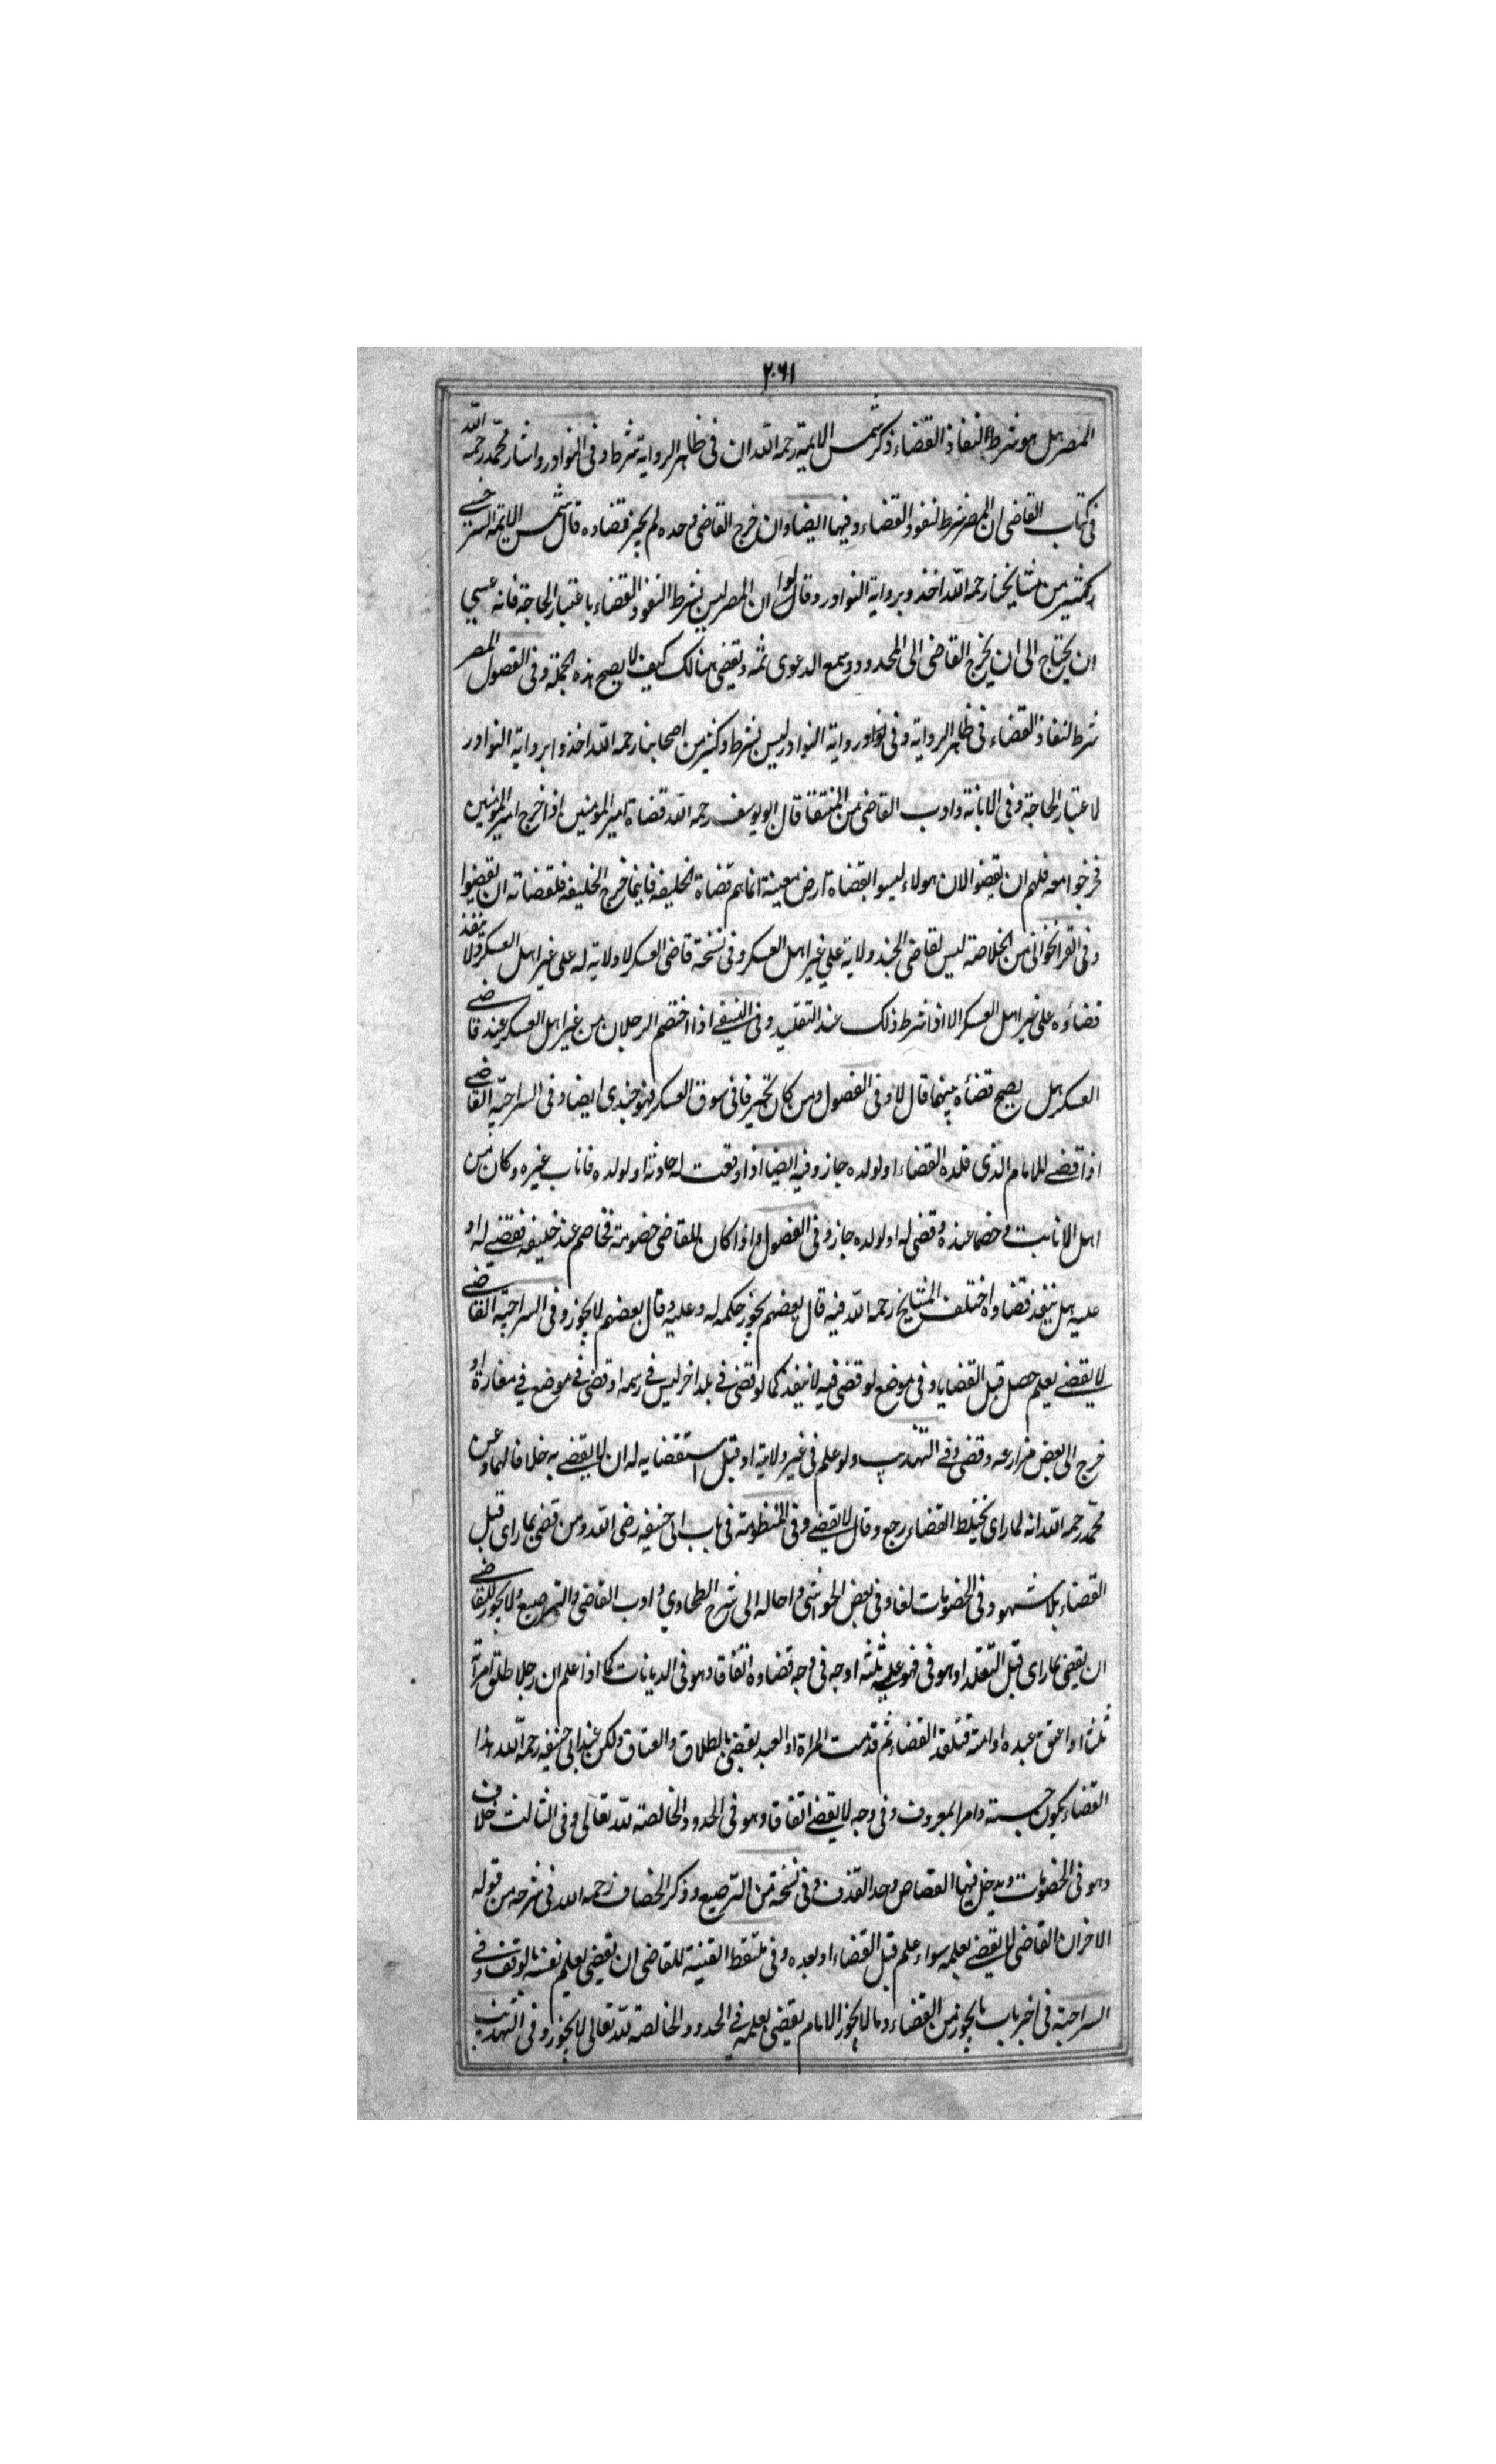 ٢٠٦١
المصر هل هو شرط لنفاذ القضاء ذكر شمس الايمة رحمه الله ان في ظاهر الرواية شرط وفي النوادر واشار محمد رحمه الله
في كتاب القاضي ان المصر شرط لنفوذ القضاء وفيها ايضا وان خرج القاضي وحده لم يجز قضاوه قال شمس الايمة السرخسي
كثير من مشايخنا رحمه الله اخذوا برواية النوادر وقالوا ان المصر ليس بشرط لنفوذ القضاء باعتبار الحاجة فانه عسى
ان يحتاج الى ان يخرج القاضي الى المحدود ويسمع الدعوى ثمه ويقضي هنالك كيف لا يصح هذه الجملة وفي الفصول المصر
شرط لنفاذ القضاء في ظاهر الرواية وفي نوادر رواية النوادر ليس بشرط وكثير من اصحابنا رحمه الله اخذوا برواية النوادر
لاعتبار الحاجة وفي الابانة وادب القاضي من المنتقا قال ابو يوسف رحمه الله قضاة امير المؤمنين اذا خرج امير المؤمنين
فخرجوا معه فلهم ان يقضوا لان هولاء ليسوا بقضاة ارض معينة انما هم قضاة الخليفة فاينما خرج الخليفة فلقضاته ان يقضوا
وفي القراخواني من الخلاصة ليس لقاضي الجند ولاية علي غير اهل العسكر وفي نسخة قاضي العسكر لا ولاية له على غير اهل العسكر ولا ينفذ
قضاؤه على غير اهل العسكر الا اذا شرط ذلك عند التقليد وفي النسفي اذا اختصم الرجلان من غير اهل العسكر عند قاضي
العسكر هل يصح قضاؤه بينهما قال لا وفي الفصول ومن كان محترفا في سوق العسكر فهو جندي ايضا وفي السراجية القاضي
اذا قضى للامام الذي قلده القضاء او لولده جاز وفيه ايضا اذا وقعت له حادثة او لولده فاناب غيره وكان من
اهل الانابت وخصما عنده وقضى له او لولده جاز وفي الفصول واذا كان للقاضي خصومة فخاصم عند خليفه فقضى له او
عليه هل ينفذ قضاوه اختلف المشايخ رحمه الله فيه قال بعضهم يجوز حكمه له وعليه وقال بعضهم لا يجوز وفي السراجية القاضي
لا يقضي بعلم حصل قبل القضايا وفي موضع لو قضى فيه لا ينفذ كما لو قضى في بلد اخر ليس في رسمه او قضى في موضع في مفازة او
خرج الى بعض مزارعه وقضى وفي التهذيب ولو علم في غير ولايته او قبل استقضايه له ان لا يقضي به خلافا لهما وعن
محمد رحمه الله انه لما راى تخليط القضاء رجع وقال لا يقضي وفي المنظومة في باب ابي حنيفه رضي الله ومن قضى بما راى قبل
القضاء بلا شهود في الخصومات لغا وفي بعض الحواشي واحاله الى شرح الطحاوي وادب القاضي والترصيع ولا يجوز للقاضي
ان يقضي بما راى قبل التقلد وهو في فهو علي ثلثة اوجه في وجه قضاوه اتفاقا وهو في الديانات كما اذا علم ان رجلا طلق امراته
ثلثا او اعتق عبده او امته فتقلد القضاء ثم قدمت المراة او العبد يقضي بالطلاق والعتاق ولكن عند ابي حنيفه رحمه الله هذا
القضاء يكون حسبة وامرا لمعروف وفي وجه لا يقضي اتفاقا وهو في الحدود الخالصة لله تعالى وفي الثالث خلاف
وهو في الخصومات ويدخل فيها القصاص وحد القذف وفي نسخة من الترصيع وذكر الخصاف رحمه الله في شرحه من قوله
الاخر ان القاضي لا يقضي بعلمه سواء علم قبل القضاء او بعده وفي ملتقط القنية للقاضي ان يقضي بعلم نفسه بالوقف وفي
السراجية في اخر باب ما يجوز من القضاء وما لا يجوز الامام يقضي بعلمه في الحدود الخالصة لله تعالى لا يجوز وفي التهذيب